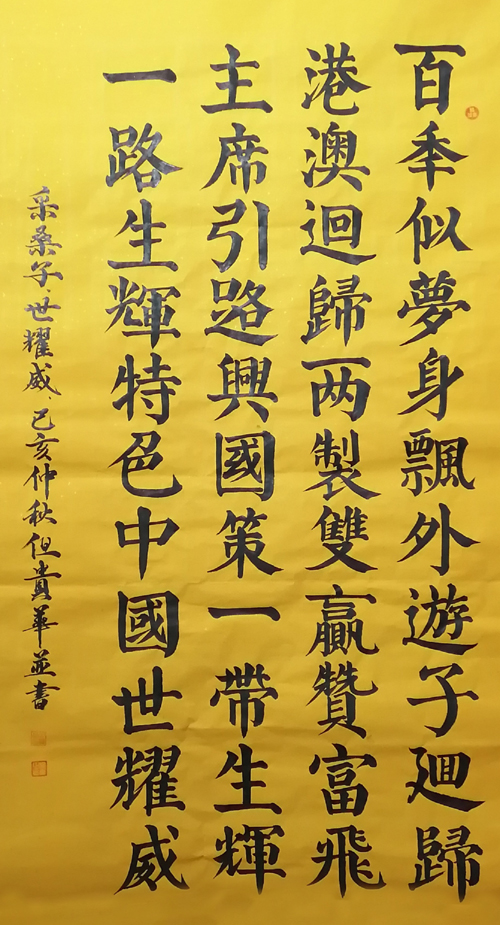 百年似夢身飄外遊子廻歸
港澳迴歸兩製雙贏贊富飛
主席引路興國策一帶生輝
一路生輝特色中國世耀威
采桑子·世耀威、己亥仲秋但貴華並書